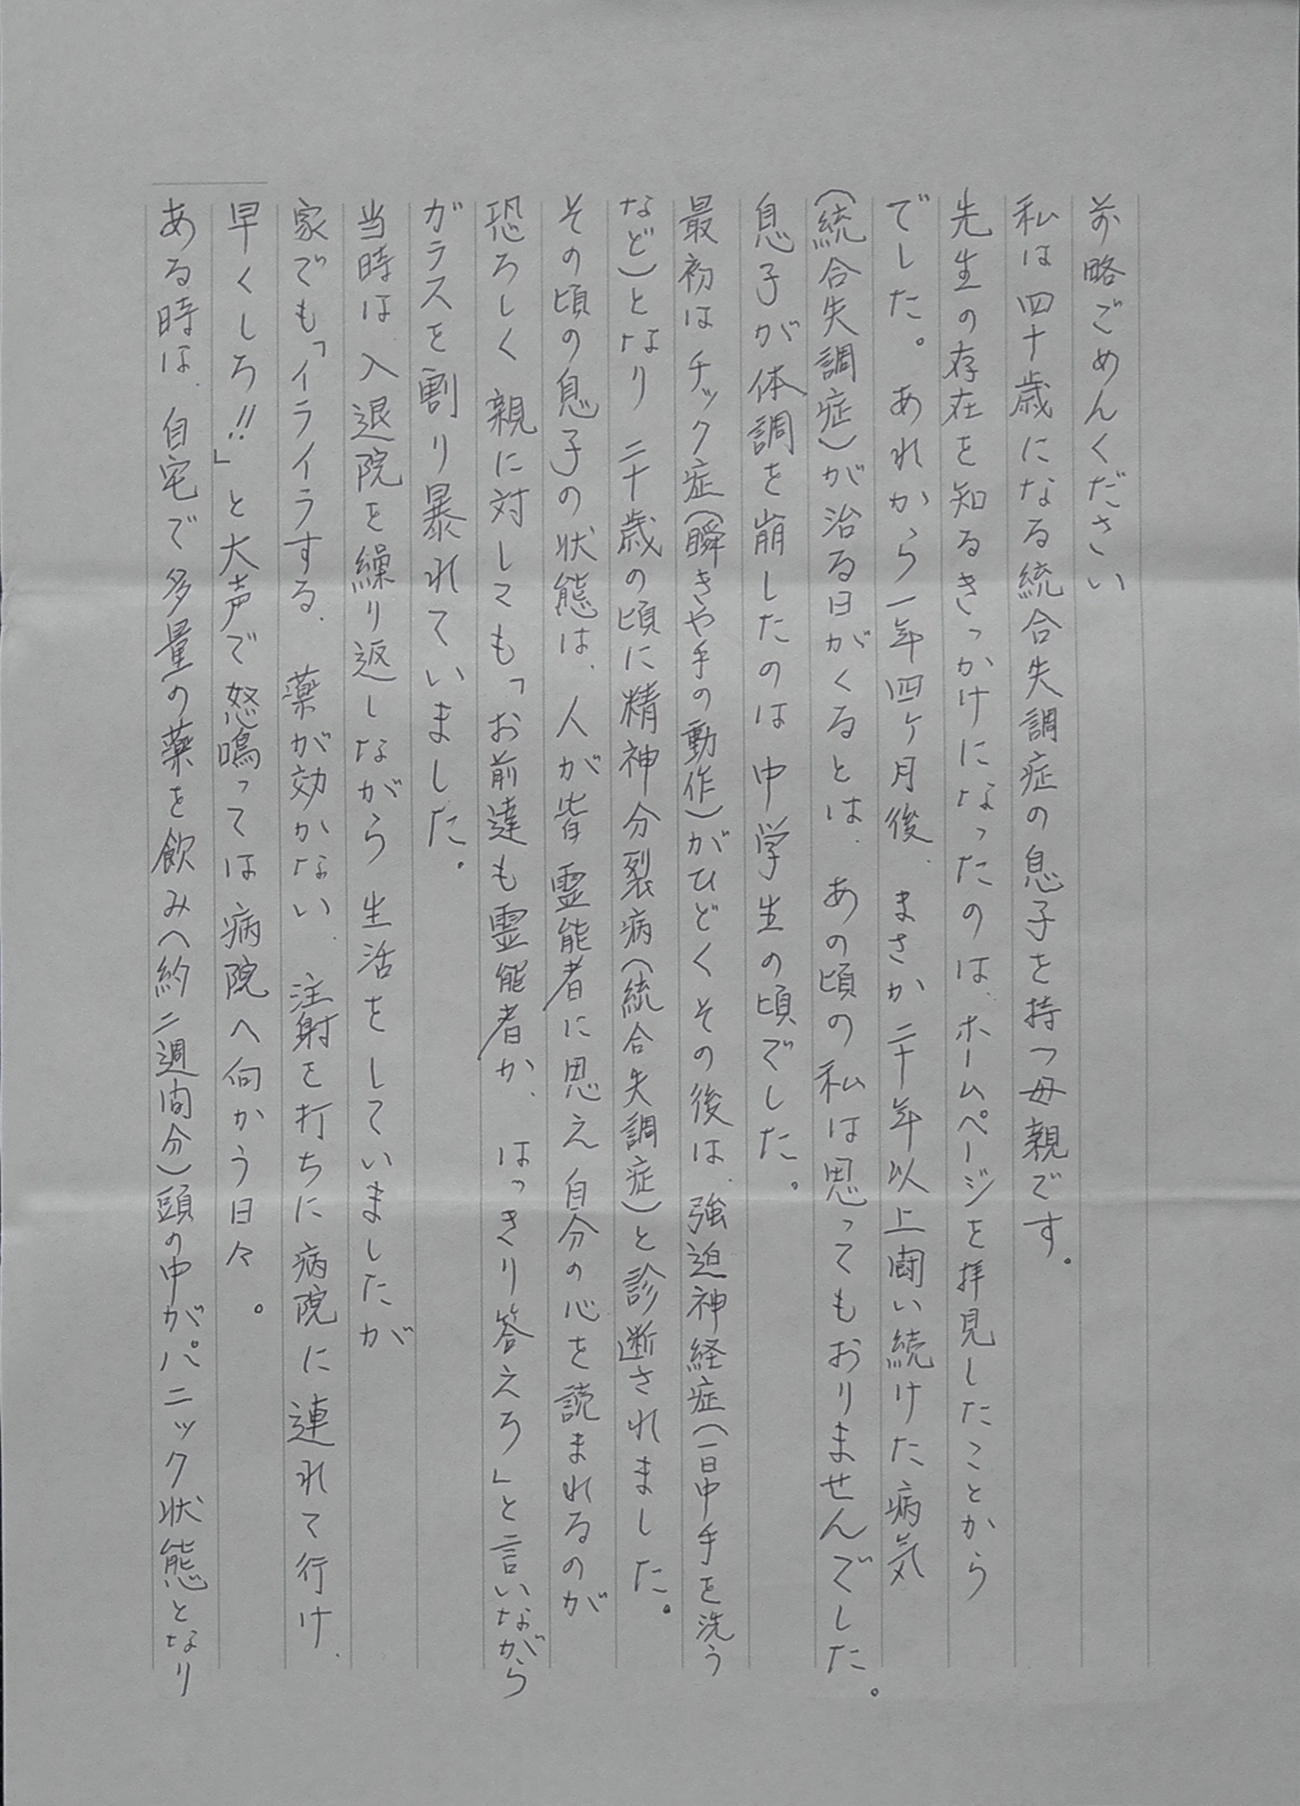 前略ごめんください
私は四十歳になる統合失調症の息子を持つ母親です。
先生の存在を知るきっかけになったのは、ホームページを拝見したことから
でした。あれから一年四ヶ月後、まさか二十年以上闘い続けた病気
(統合失調症)が治る日がくるとは、あの頃の私は思ってもおりませんでした。
息子が体調を崩したのは中学生の頃でした。
最初はチック症(瞬きや手の動作)がひどくその後は、強迫神経症(一日中手を洗う
など)となり二十歳の頃に精神分裂病(統合失調症)と診断されました。
その頃の息子の状態は、人が皆霊能者に思え自分の心を読まれるのが
恐ろしく親に対しても「お前達も霊能者か、はっきり答えろ」と言いながら
ガラスを割り暴れていました。
当時は入退院を繰り返しながら生活をしていましたが
家でも「イライラする、薬が効かない、注射を打ちに病院に連れて行け、
早くしろ!!」と大声で怒鳴っては病院へ向かう日々。
ある時は、自宅で多量の薬を飲み(約二週間分)頭の中がパニック状態となり